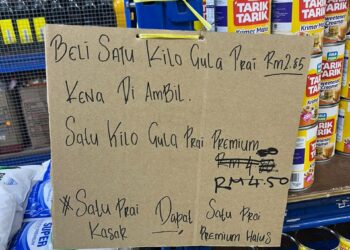 Beli Satu Kilo Gula Prai RM2.85
Kena Di Ambil.
Satu Kilo Gula Prai Premium
RM4.50
*Satu Prai Kasar Dapat Satu Prai Premium Halus
TARIK
TARIK
Krimer Manis
TARIK
TARIK
TARIK
TARIK
SUPER